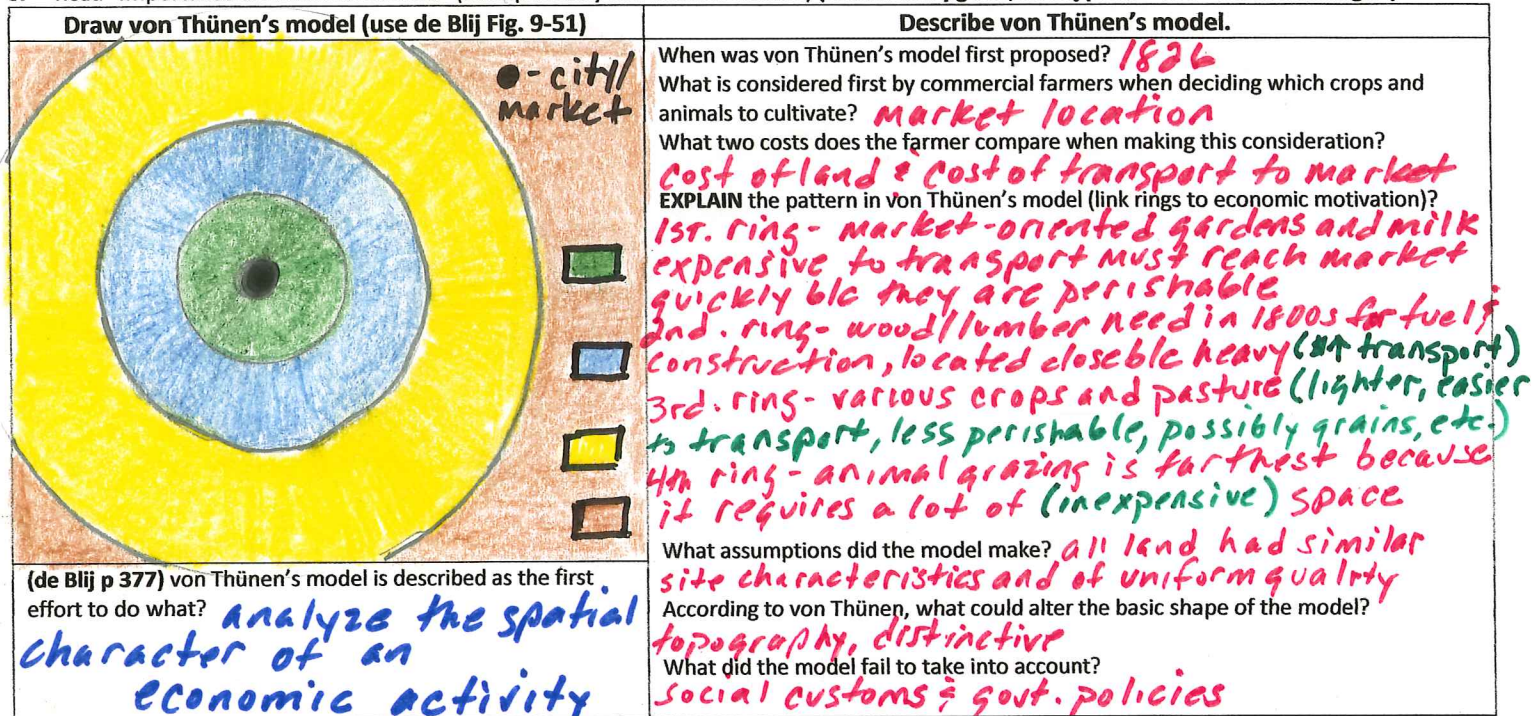 Draw von Thünen's model (use de Blij Fig. 9-51)
●-city/
market
(de Blij p 377) von Thünen's model is described as the first
effort to do what? analyze the spatial
character of an
economic activity
Describe von Thünen's model.
When was von Thünen's model first proposed? 1826
What is considered first by commercial farmers when deciding which crops and
animals to cultivate? market location
What two costs does the farmer compare when making this consideration?
cost of land & cost of transport to market
EXPLAIN the pattern in von Thünen's model (link rings to economic motivation)?
1st. ring- market-oriented gardens and milk
expensive to transport must reach market
quickly b/c they are perishable
2nd. ring- wood/lumber need in 1800s for fuel &
construction, located close b/c heavy (↑ transport)
3rd. ring- various crops and pasture (lighter, easier
to transport, less perishable, possibly grains, etc.)
4th ring- animal grazing is farthest because
it requires a lot of (inexpensive) space
What assumptions did the model make? all land had similar
site characteristics and of uniform quality
According to von Thünen, what could alter the basic shape of the model?
topography, distinctive
What did the model fail to take into account?
social customs & govt. policies